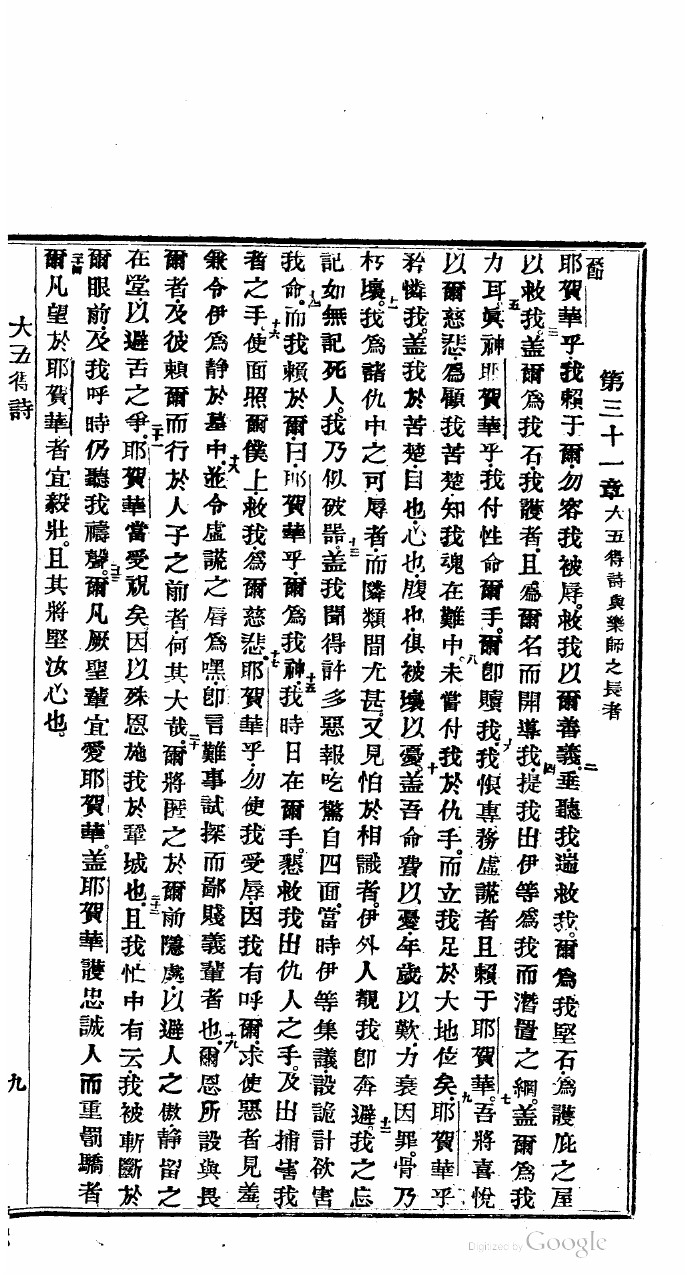 第三十一章 大五得詩與樂師之長者
耶賀華乎、我賴于爾、勿容我被辱。救我以爾善義。二垂聽我、遄救我。爾為我堅石、為護庇之屋
以救我。三盖爾為我石、我護者、且為爾名而開導我。四提我出伊等為我而潛置之網。盖爾為我
力耳。五真神耶賀華乎、我付性命爾手。爾即贖我。六我恨專務虛謊者、且賴于耶賀華。七吾將喜悅
以爾慈悲、為顧我苦楚、知我魂在難中、八未嘗付我於仇手。而立我足於大地位矣。九耶賀華乎
矜憐我。盖我於苦楚。目也、心也、腹也、俱被壞以憂。十盖吾命費以憂、年歲以歎、力衰因罪。骨乃
朽壞。十一我為諸仇中之可辱者、而隣類間尤甚。又見怕於相識者。伊外人覩我即奔避。十二我之忘
記如無記死人。我乃似破噐。十三盖我聞得許多惡報、吃驚自四面。當時伊等集議、設詭計欲害
我命。十四而我賴於爾、曰、耶賀華乎、爾為我神。十五我時日在爾手。懇救我出仇人之手。及出捕害我
者之手。十六使面照爾僕上、救我為爾慈悲。十七耶賀華乎、勿使我受辱、因我有呼爾、求使惡者見羞
兼令伊為静於墓中。十八並令虛謊之唇為嘿、即言難事、試探而鄙賤義輩者也。十九爾恩所設與畏
爾者、及彼賴爾而行於人子之前者、何其大哉。二十爾將匿之於爾前隱處、以避人之傲、静留之
在堂、以避舌之爭。二十一耶賀華當受祝矣、因以殊恩施我於鞏城也。二十二且我忙中有云、我被斬斷於
爾眼前、及我呼時仍聽我禱聲。二十三爾凡厥聖輩宜愛耶賀華、盖耶賀華護忠誠人而重罰驕者
二十四爾凡望於耶賀華者宜毅壯。且其將堅汝心也。
大五得詩
九
Digitized by Google